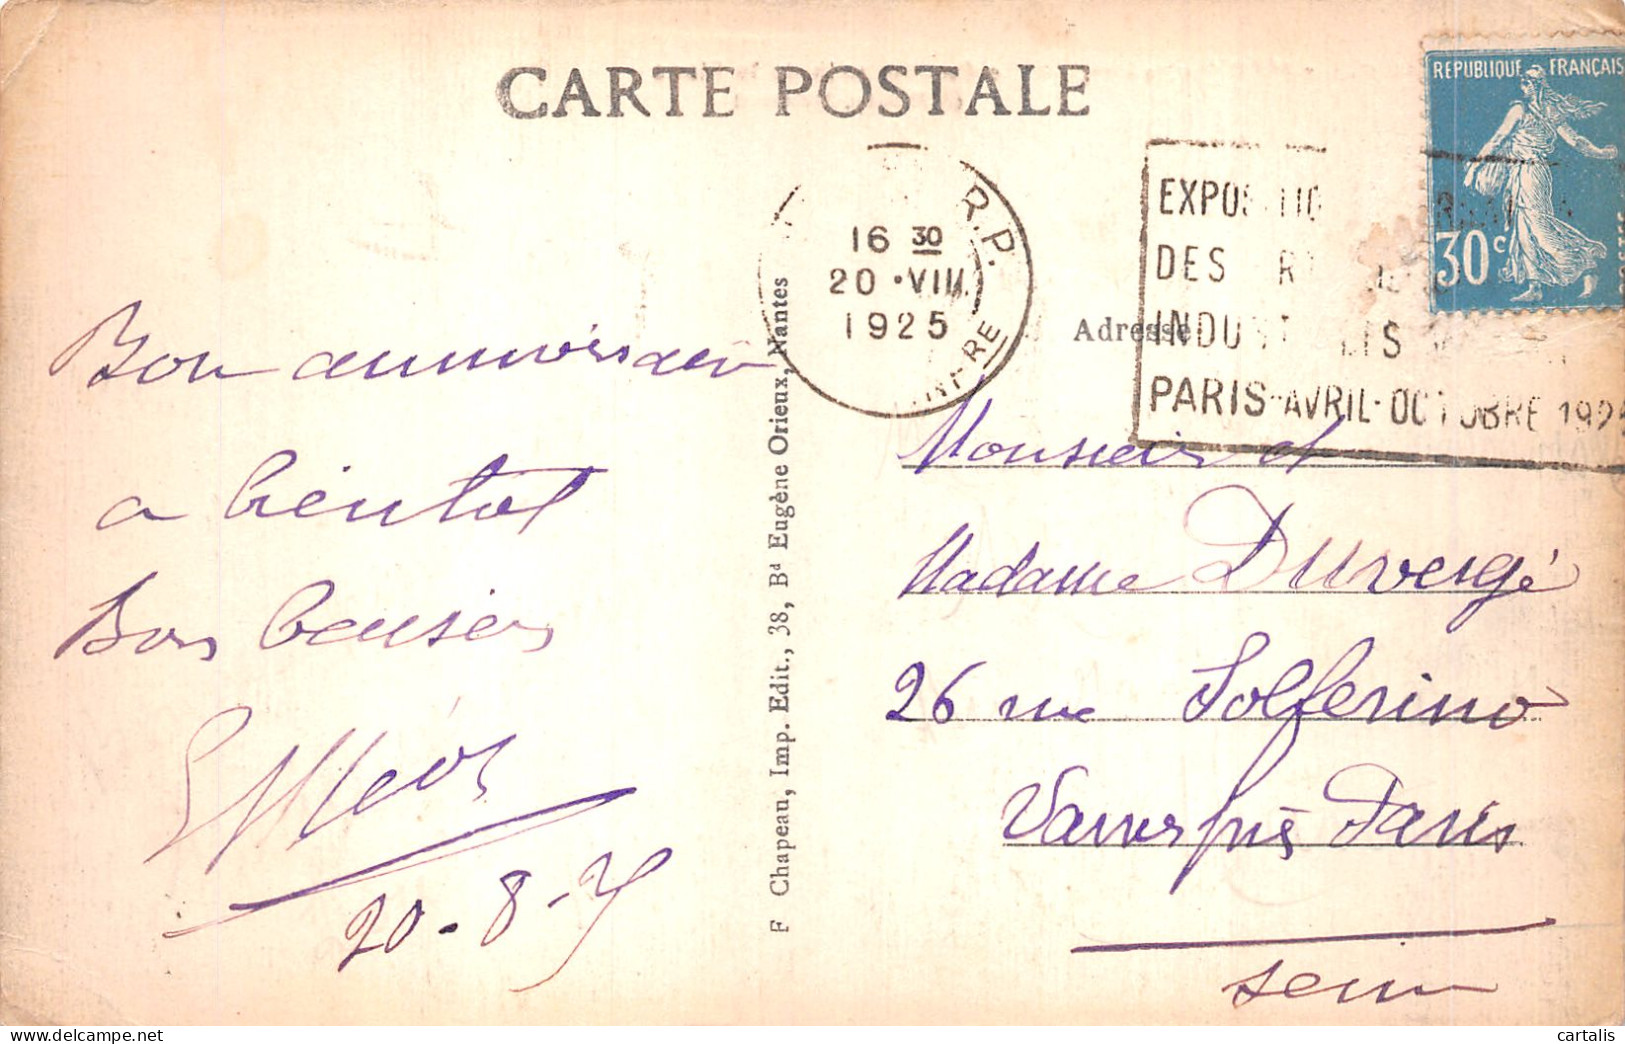 CARTE POSTALE
REPUBLIQUE FRANÇAIS
30c
POSTES
R.P.
16 30
20 · VIII
1925
INF-RE
EXPOSITIO
DES ARTS
INDUSTRIELLES
PARIS-AVRIL-OCTOBRE 1925
Adresse
Bon anniversaire
a bientot
Bons baisers
20-8-25
F Chapeau, Imp. Edit., 38, Bd Eugène Orieux, Nantes
Monsieur et
Madame Duvergé
26 rue Solferino
Vanves près Paris
Seine
cartalis